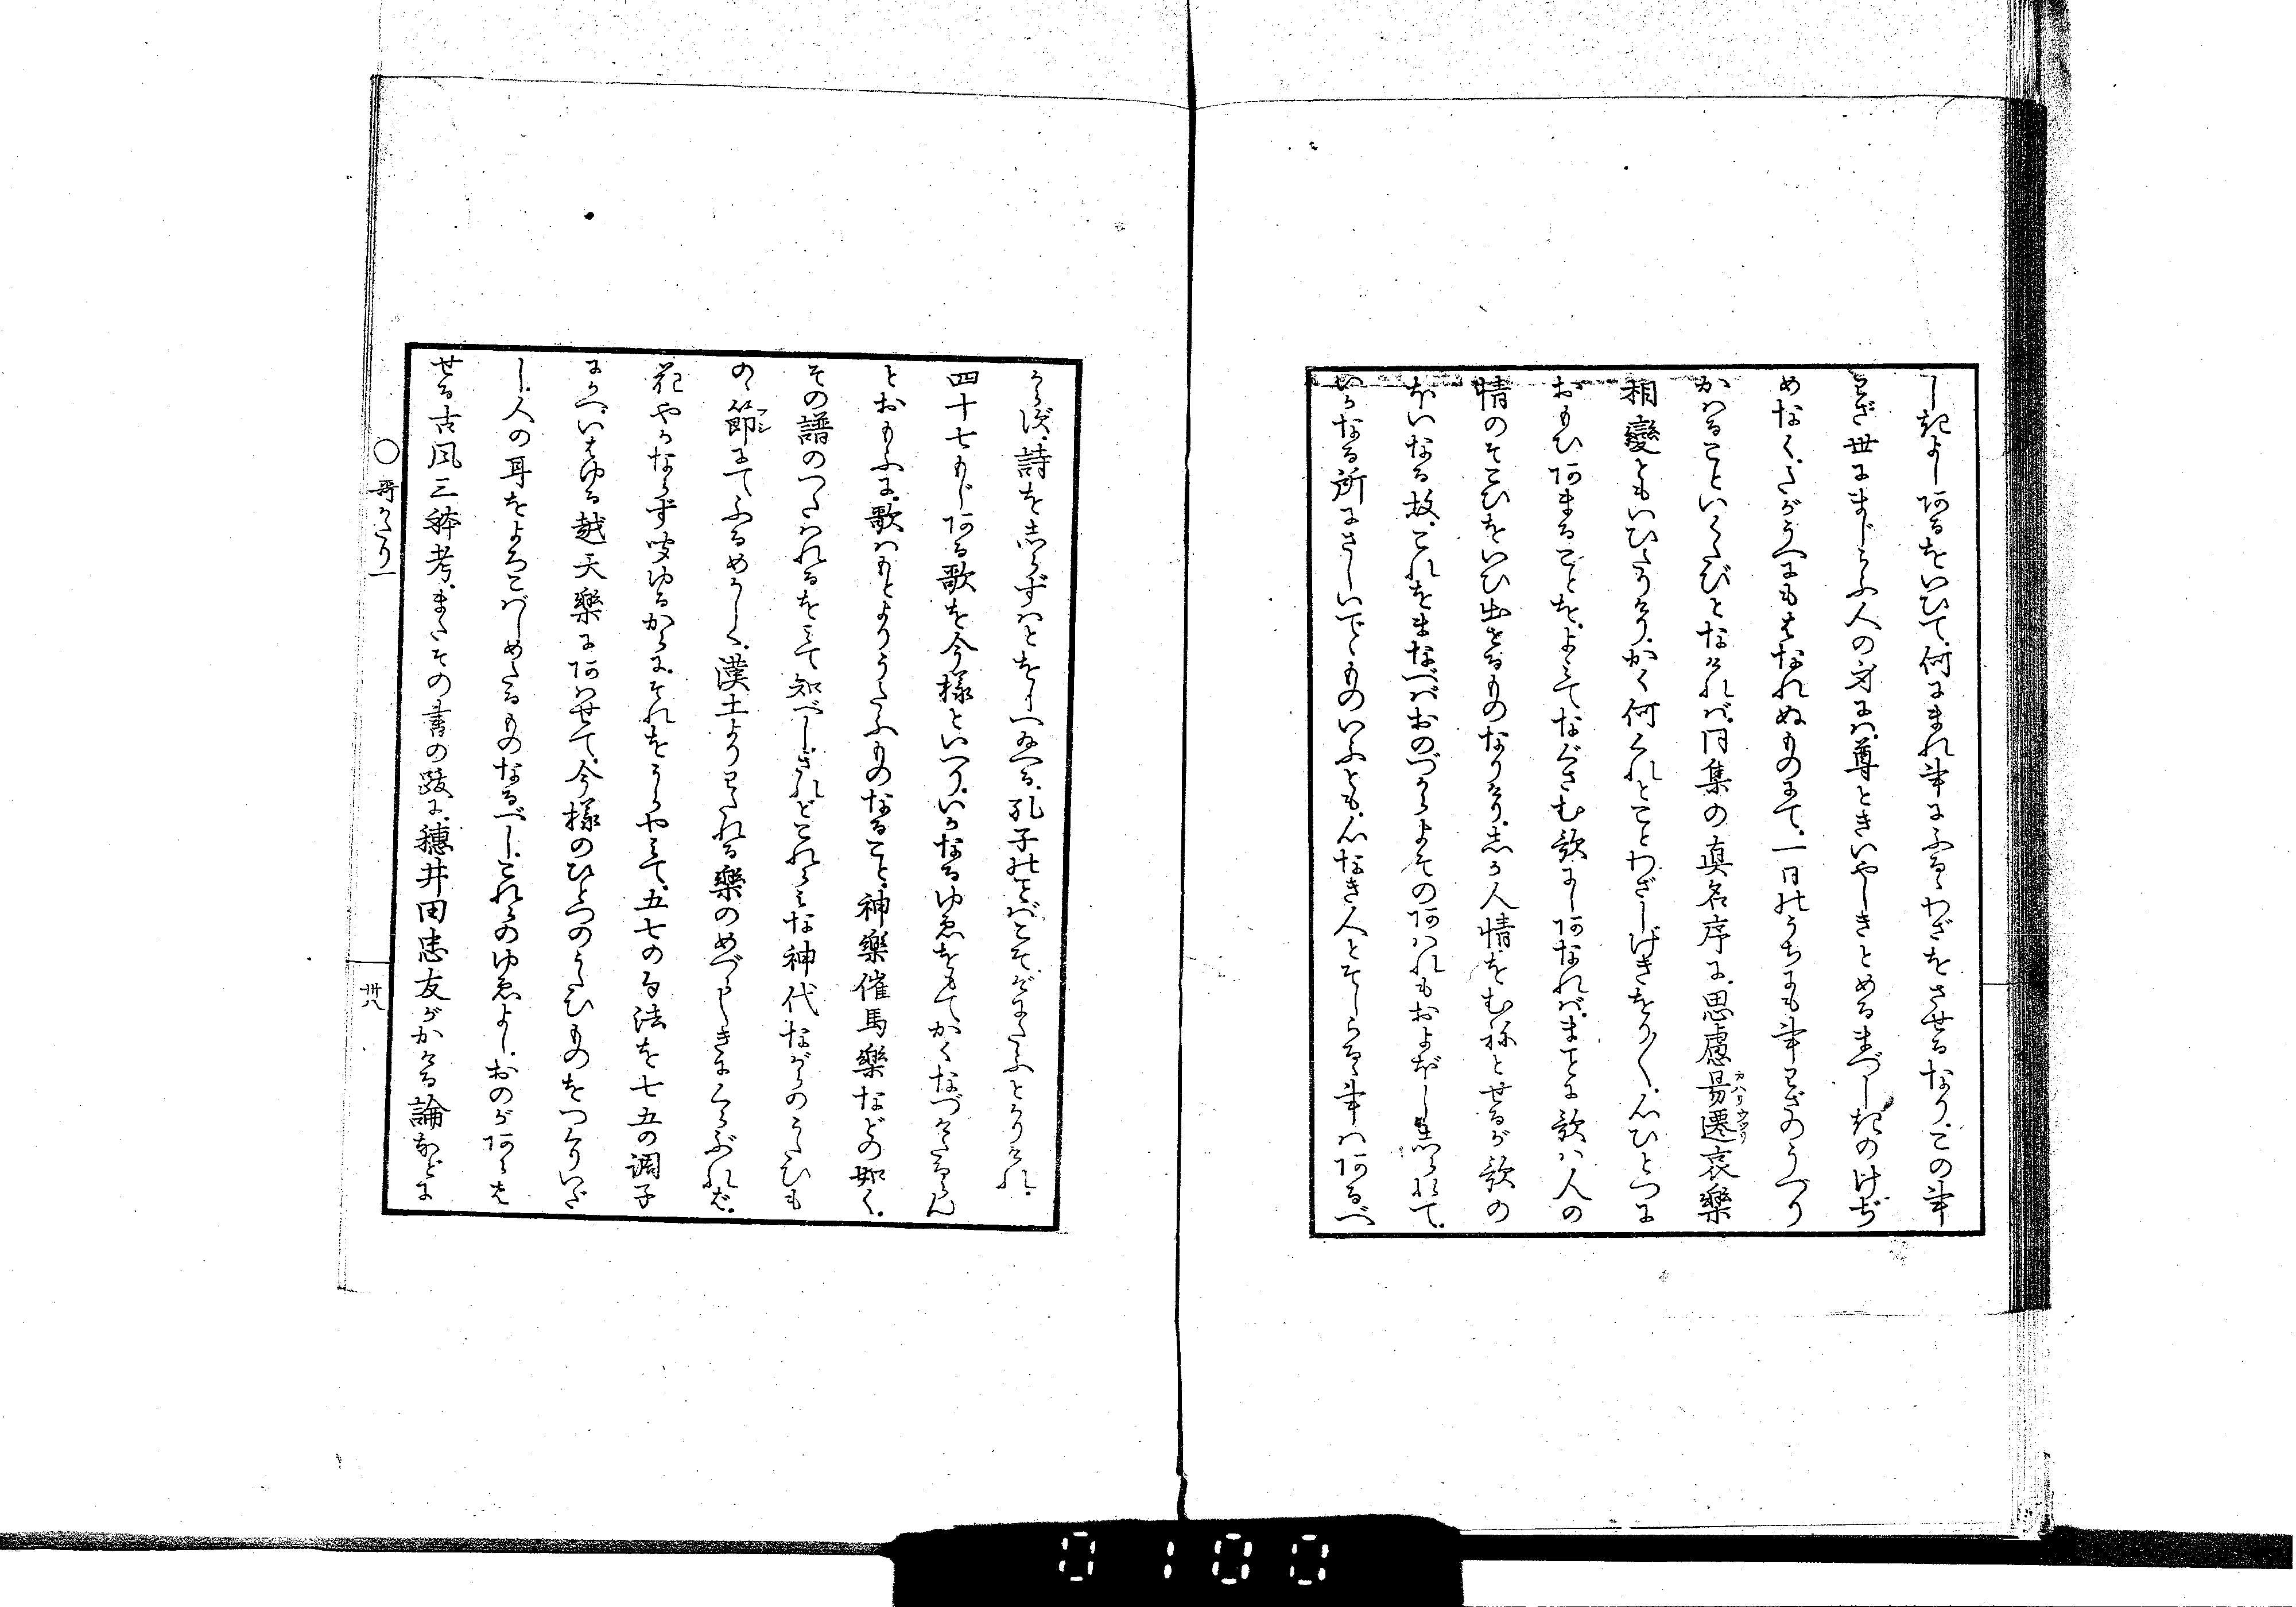 しきよしあるをいひて、何にまれ事にふるゝわざをさせるなり、この事
わざ世にまじらふ人の身には、尊ときいやしきとめるまづしきのけぢ
めなく、たがうへにもはなれぬものにて、一日のうちにも事わざのうつり
かはることいくたびとなければ、同集の真名序に、思慮易遷哀樂
カハリウツリ
相變ともいひたりけり、かく何くれとことわざしげきをり〳〵、心ひとつに
おもひあまることを、よみてなぐさむ歌にしあなれば、まことに歌ハ人の
情のそこひをいひ出せるものなりけり、志か人情をむねとせるが歌の
ほいなる故、これをまなべばおのづからよその阿ハれもおよぼし志られて、
いかなる所にさしいでゝものいふとも、心なき人とそしらるゝ事ハあるべ
からず、詩を志らずハとをしへ給へる、孔子のことばこそぞまたふとかりけれ、
四十七もじある歌を今様といへり、いかなるゆゑをもてかくなづけたるらん
とおもふに、歌ハもとよりうたふものなること、神樂催馬樂などの如く、
その譜のつたハれるをミて知べし、されどこれらミな神代ながらのうたひも
のゝ節にてふるめかしく、漢土よりわたれる樂のめづらしきにくらぶれば、
フシ
花やかならず聞ゆるからに、それをうらやミて、五七の句法を七五の調子
にかへ、いはゆる越天樂にあハせて、今様のひとつのうたひものをつくりいだ
し、人の耳をよろこバしめたるものなるべし、これらのゆゑよし、おのがあらは
せる古風三躰考、またその書の跋に、穗井田忠友がかける論などに
○哥かたり一
卅八
0100